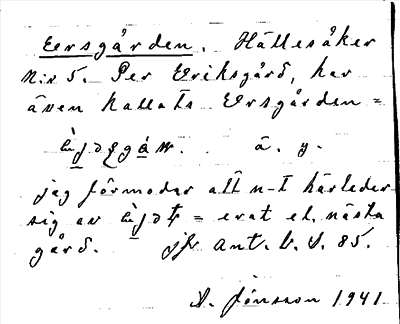 Versgården. Hällesåker
N:r 5. Per Eriksgård, har
även kallats Ersgården =
ä. y.
jag förmodar att n-t härleder
sig av = erat el. nästa
gård. jfr ant. b. s. 85.
A. Jönsson 1941